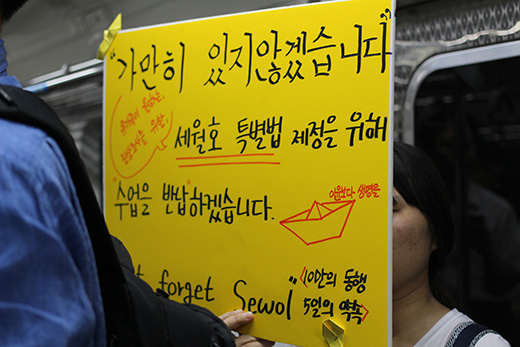 "가만히 있지않겠습니다"
유가족이 원하는,
유가족을 위한,
세월호 특별법 제정을 위해
"수업을 반납하겠습니다.
이윤보다 생명을
forget Sewol"
<10만의 동행
5일의 약속>